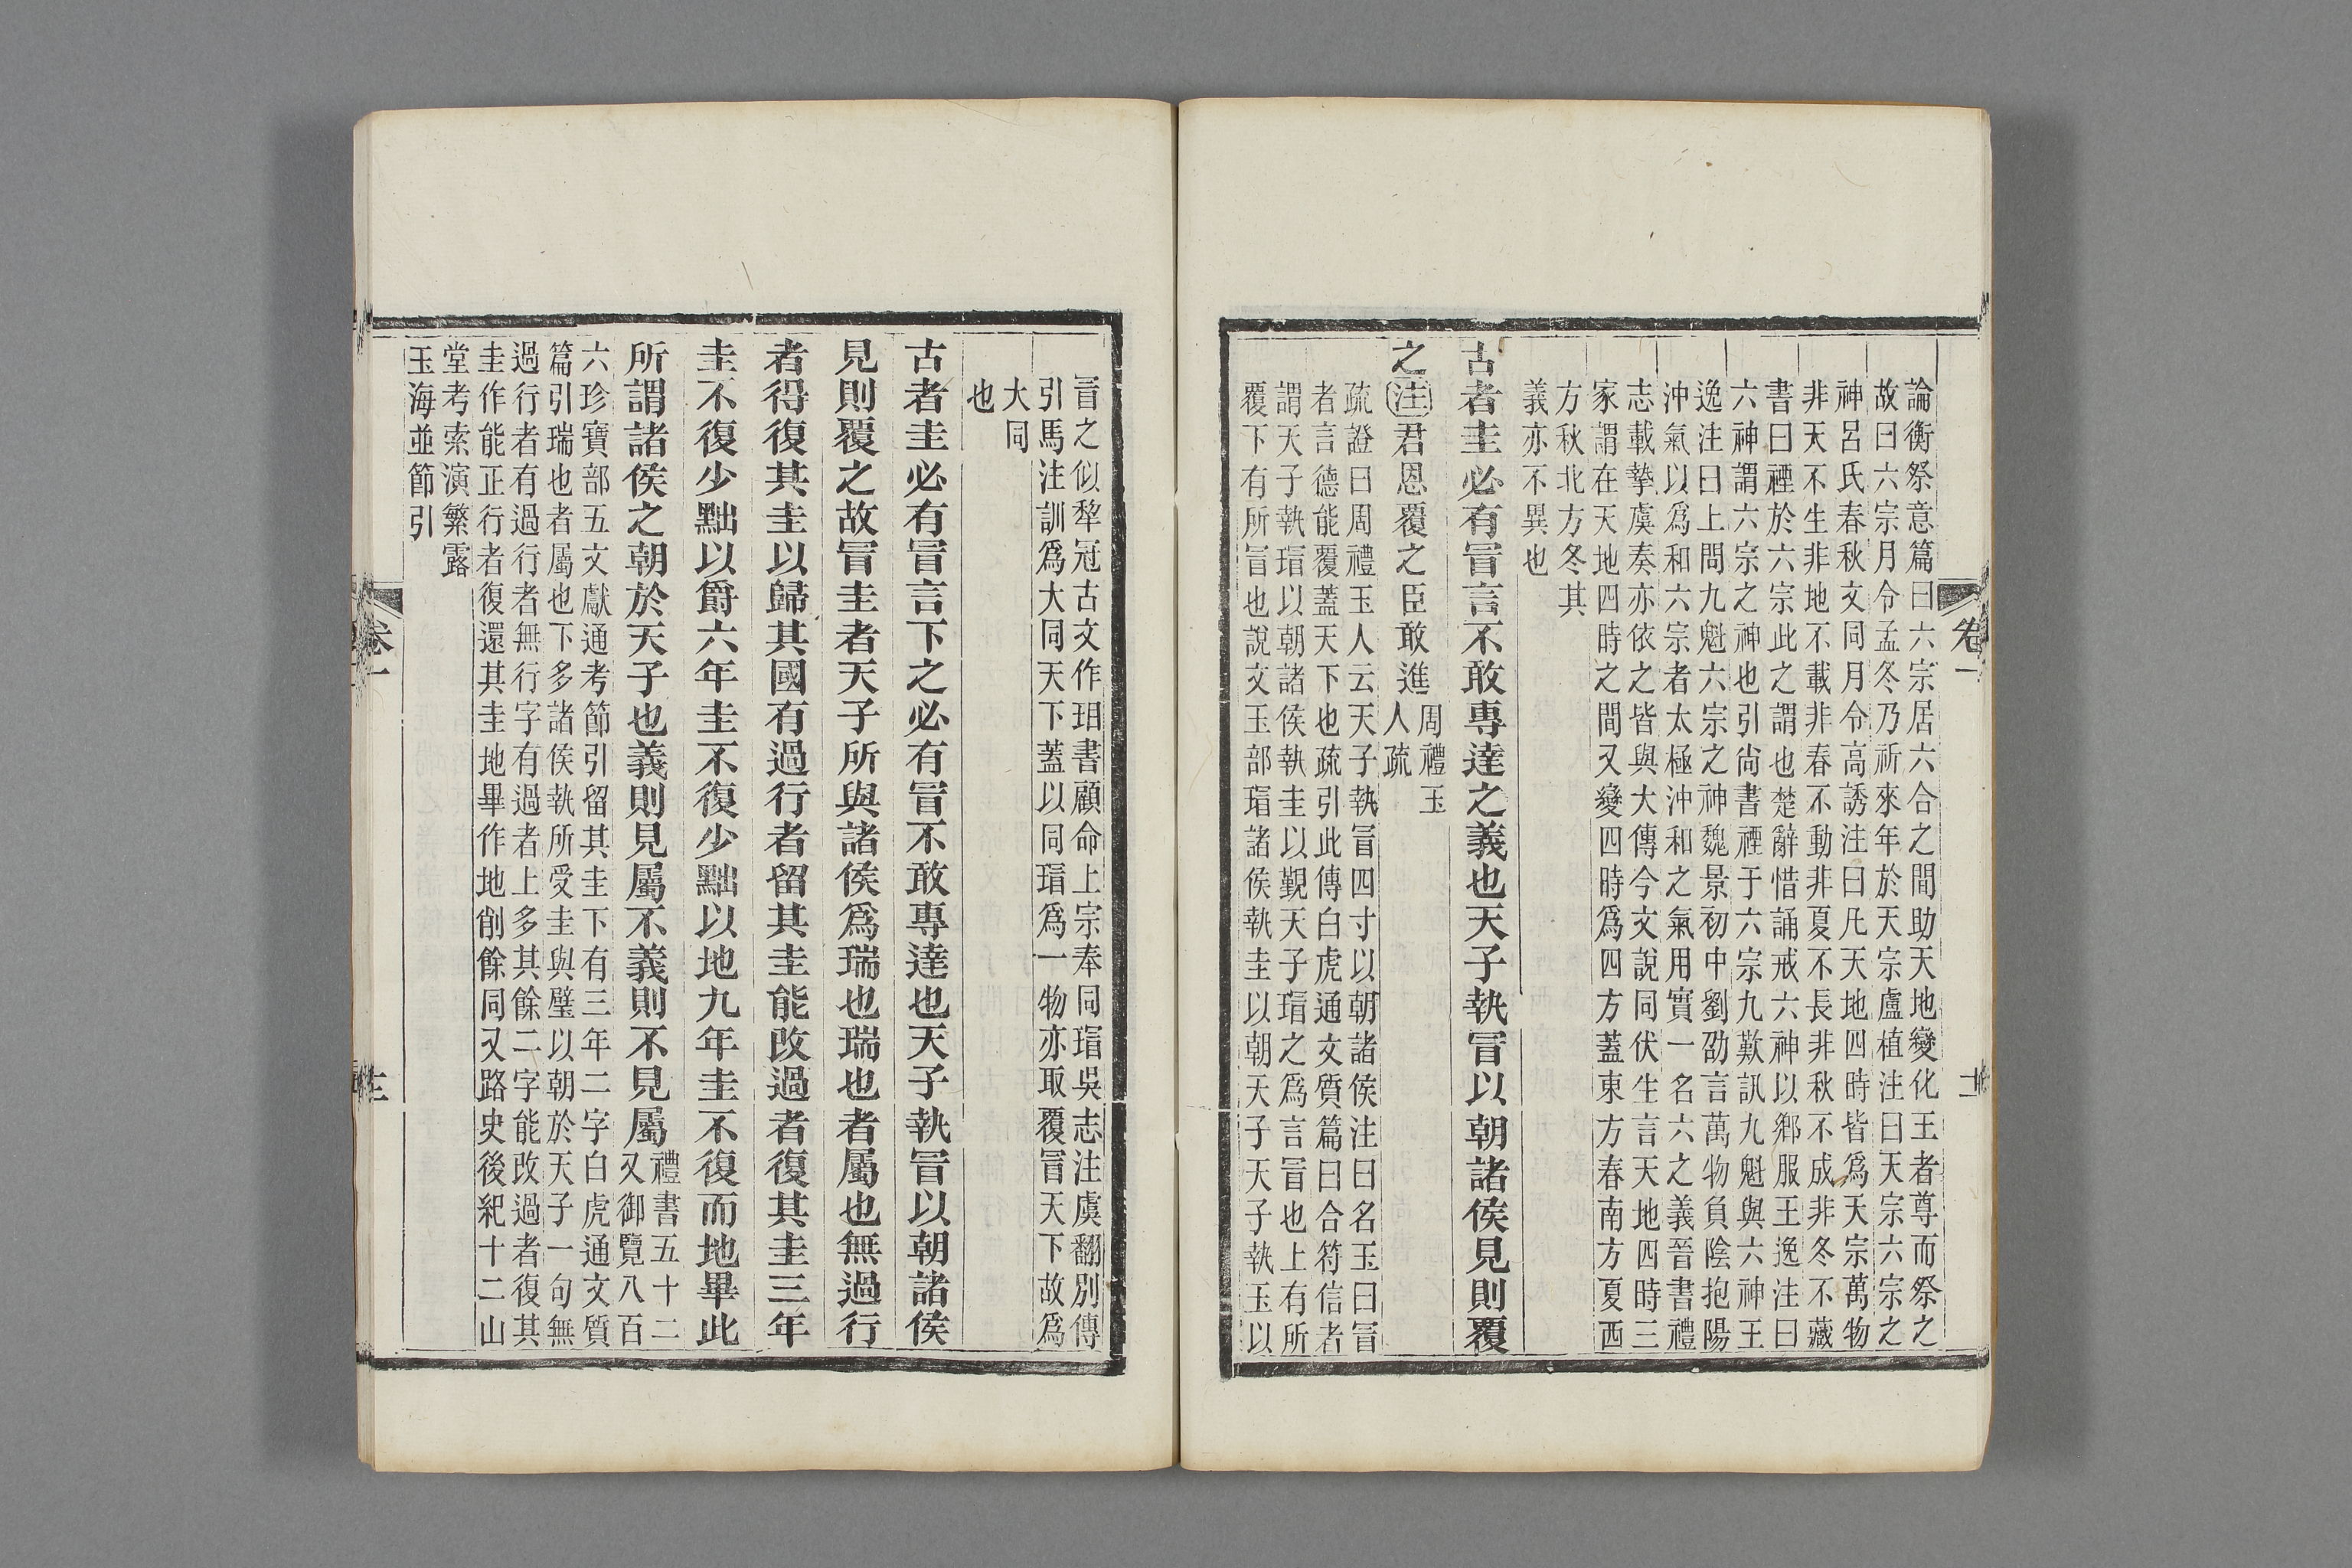 論衡祭意篇曰六宗居六合之間助天地變化王者尊而祭之
故曰六宗月令孟冬乃祈來年於天宗盧植注曰天宗六宗之
神呂氏春秋文同月令高誘注曰凡天地四時皆爲天宗萬物
非天不生非地不載非春不動非夏不長非秋不成非冬不藏
書曰禋於六宗此之謂也楚辭惜誦戒六神以鄕服王逸注曰
六神謂六宗之神也引尙書禋于六宗九歎訊九魁與六神王
逸注曰上問九魁六宗之神魏景初中劉劭言萬物負陰抱陽
沖氣以爲和六宗者太極沖和之氣用實一名六之義晉書禮
志載摯虞奏亦依之皆與大傳今文說同伏生言天地四時三
家謂在天地四時之間又變四時爲四方蓋東方春南方夏西
方秋北方冬其
義亦不異也
古者圭必有冒言不敢專達之義也天子執冒以朝諸侯見則覆
之注君恩覆之臣敢進周禮玉
人疏
疏證曰周禮玉人云天子執冒四寸以朝諸侯注曰名玉曰冒
者言德能覆蓋天下也疏引此傳白虎通文質篇曰合符信者
謂天子執瑁以朝諸侯執圭以覲天子瑁之爲言冒也上有所
覆下有所冒也說文玉部瑁諸侯執圭以朝天子天子執玉以
卷一
冒之似犂冠古文作玥書顧命上宗奉同瑁吳志注虞翻別傳
引馬注訓爲大同天下蓋以同瑁爲一物亦取覆冒天下故爲
大同
也
古者圭必有冒言下之必有冒不敢專達也天子執冒以朝諸侯
見則覆之故冒圭者天子所與諸侯爲瑞也瑞也者屬也無過行
者得復其圭以歸其國有過行者留其圭能改過者復其圭三年
圭不復少黜以爵六年圭不復少黜以地九年圭不復而地畢此
所謂諸侯之朝於天子也義則見屬不義則不見屬禮書五十二
又御覽八百
六珍寶部五文獻通考節引留其圭下有三年二字白虎通文質
篇引瑞也者屬也下多諸侯執所受圭與璧以朝於天子一句無
過行者有過行者無行字有過者上多其餘二字能改過者復其
圭作能正行者復還其圭地畢作地削餘同又路史後紀十二山
堂考索演繁露
玉海並節引
卷一